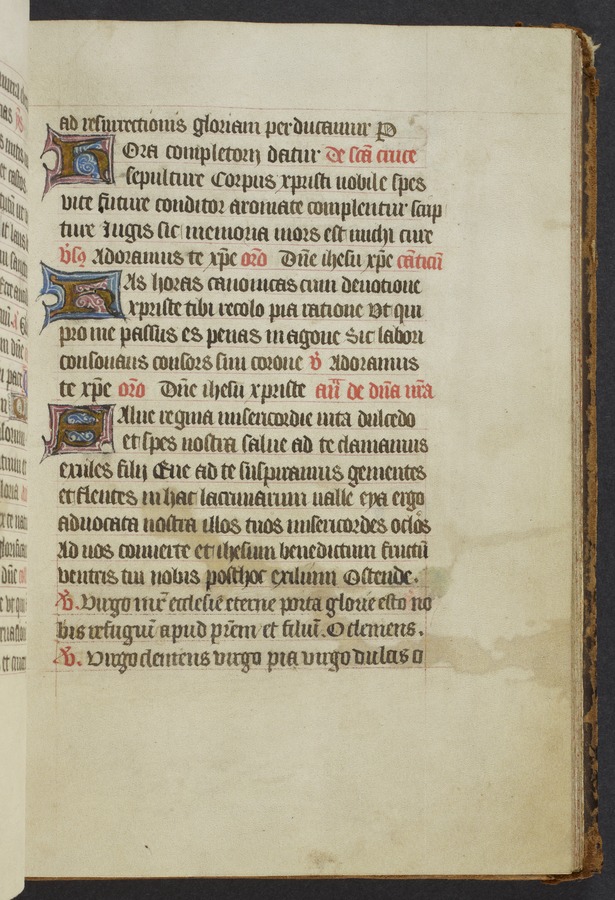 ad resurrectionis gloriam perducamur P
Hora completorij datur de scā cruce
sepulture Corpus xpristi nobile spes
vite future conditor aromate complentur scrip
ture Iugis sit memoria mors est michi cure
v̄sꝫ Adoramus te xp̄e or̄o Dn̄e ihesu xp̄e cāticū
Has horas canonicas cum deuotione
xpriste tibi recolo pia ratione Vt qui
pro me passus es penas in agone Sic labori
consonans consors sim corone v̄ Adoramus
te xp̄e or̄o Dn̄e ihesu xpriste añ de dn̄a nr̄a
Salue regina misericordie uita dulcedo
et spes nostra salue ad te clamamus
exules filij Eue ad te suspiramus gementes
et flentes in hac lacrimarum ualle eya ergo
aduocata nostra illos tuos misericordes oclōs
Ad nos conuerte et ihesum benedictum fructū
ventris tui nobis posthoc exilium Ostende.
V̄. Virgo mr̄ ecclesie eterne porta glorie esto no
bis refugiū apud pr̄em et filiū. O clemens.
V̄. Virgo clemens virgo pia virgo dulcis o